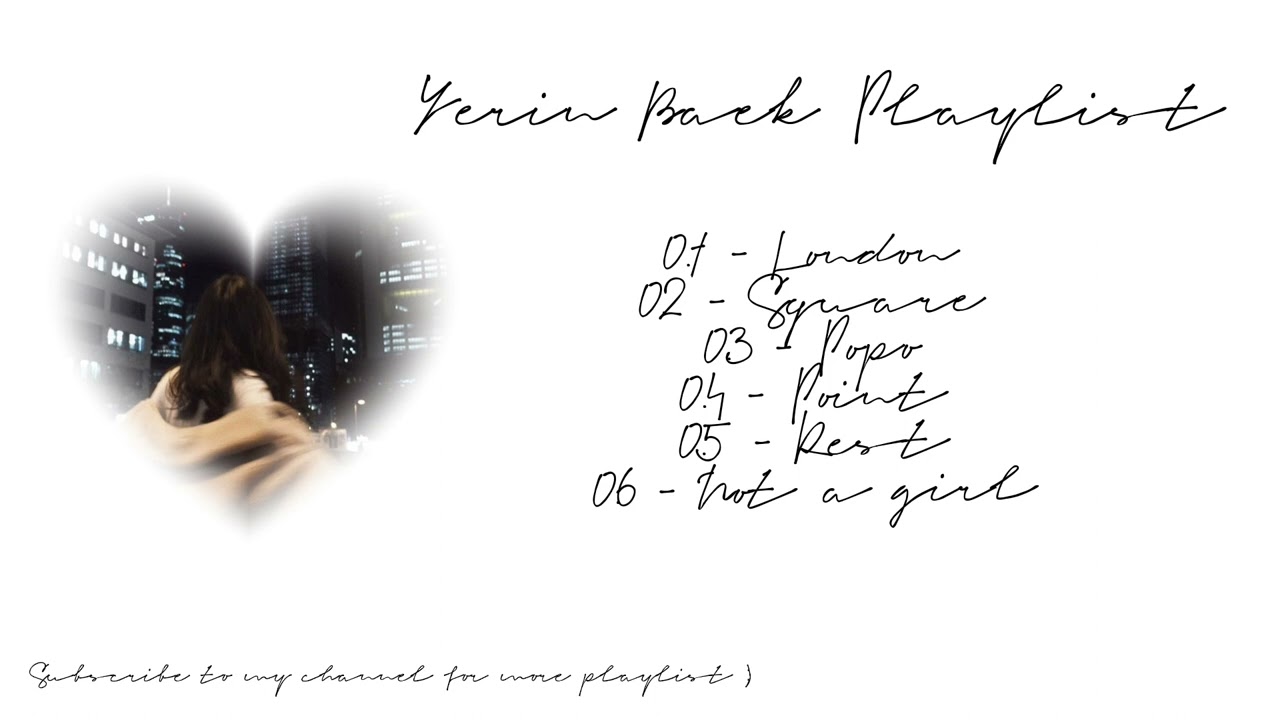 Yerin Baek Playlist
01 - London
02 - Square
03 - Popo
04 - Point
05 - Rest
06 - Not a girl
Subscribe to my channel for more playlist )